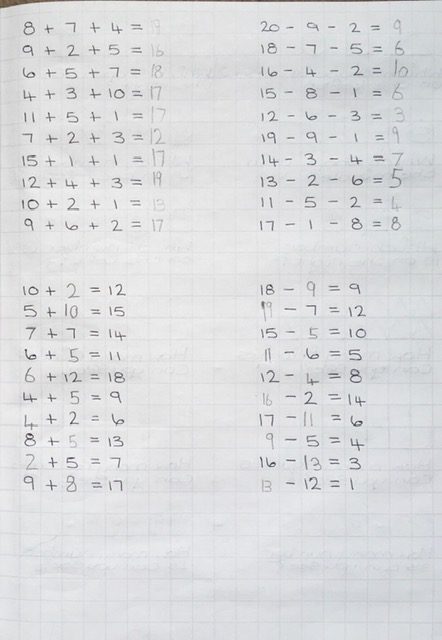 8 + 7 + 4 = 19
9 + 2 + 5 = 16
6 + 5 + 7 = 18
4 + 3 + 10 = 17
11 + 5 + 1 = 17
7 + 2 + 3 = 12
15 + 1 + 1 = 17
12 + 4 + 3 = 19
10 + 2 + 1 = 13
9 + 6 + 2 = 17
20 - 9 - 2 = 9
18 - 7 - 5 = 6
16 - 4 - 2 = 10
15 - 8 - 1 = 6
12 - 6 - 3 = 3
19 - 9 - 1 = 9
14 - 3 - 4 = 7
13 - 2 - 6 = 5
11 - 5 - 2 = 4
17 - 1 - 8 = 8
10 + 2 = 12
5 + 10 = 15
7 + 7 = 14
6 + 5 = 11
6 + 12 = 18
4 + 5 = 9
4 + 2 = 6
8 + 5 = 13
2 + 5 = 7
9 + 8 = 17
18 - 9 = 9
19 - 7 = 12
15 - 5 = 10
11 - 6 = 5
12 - 4 = 8
16 - 2 = 14
17 - 11 = 6
9 - 5 = 4
16 - 13 = 3
13 - 12 = 1